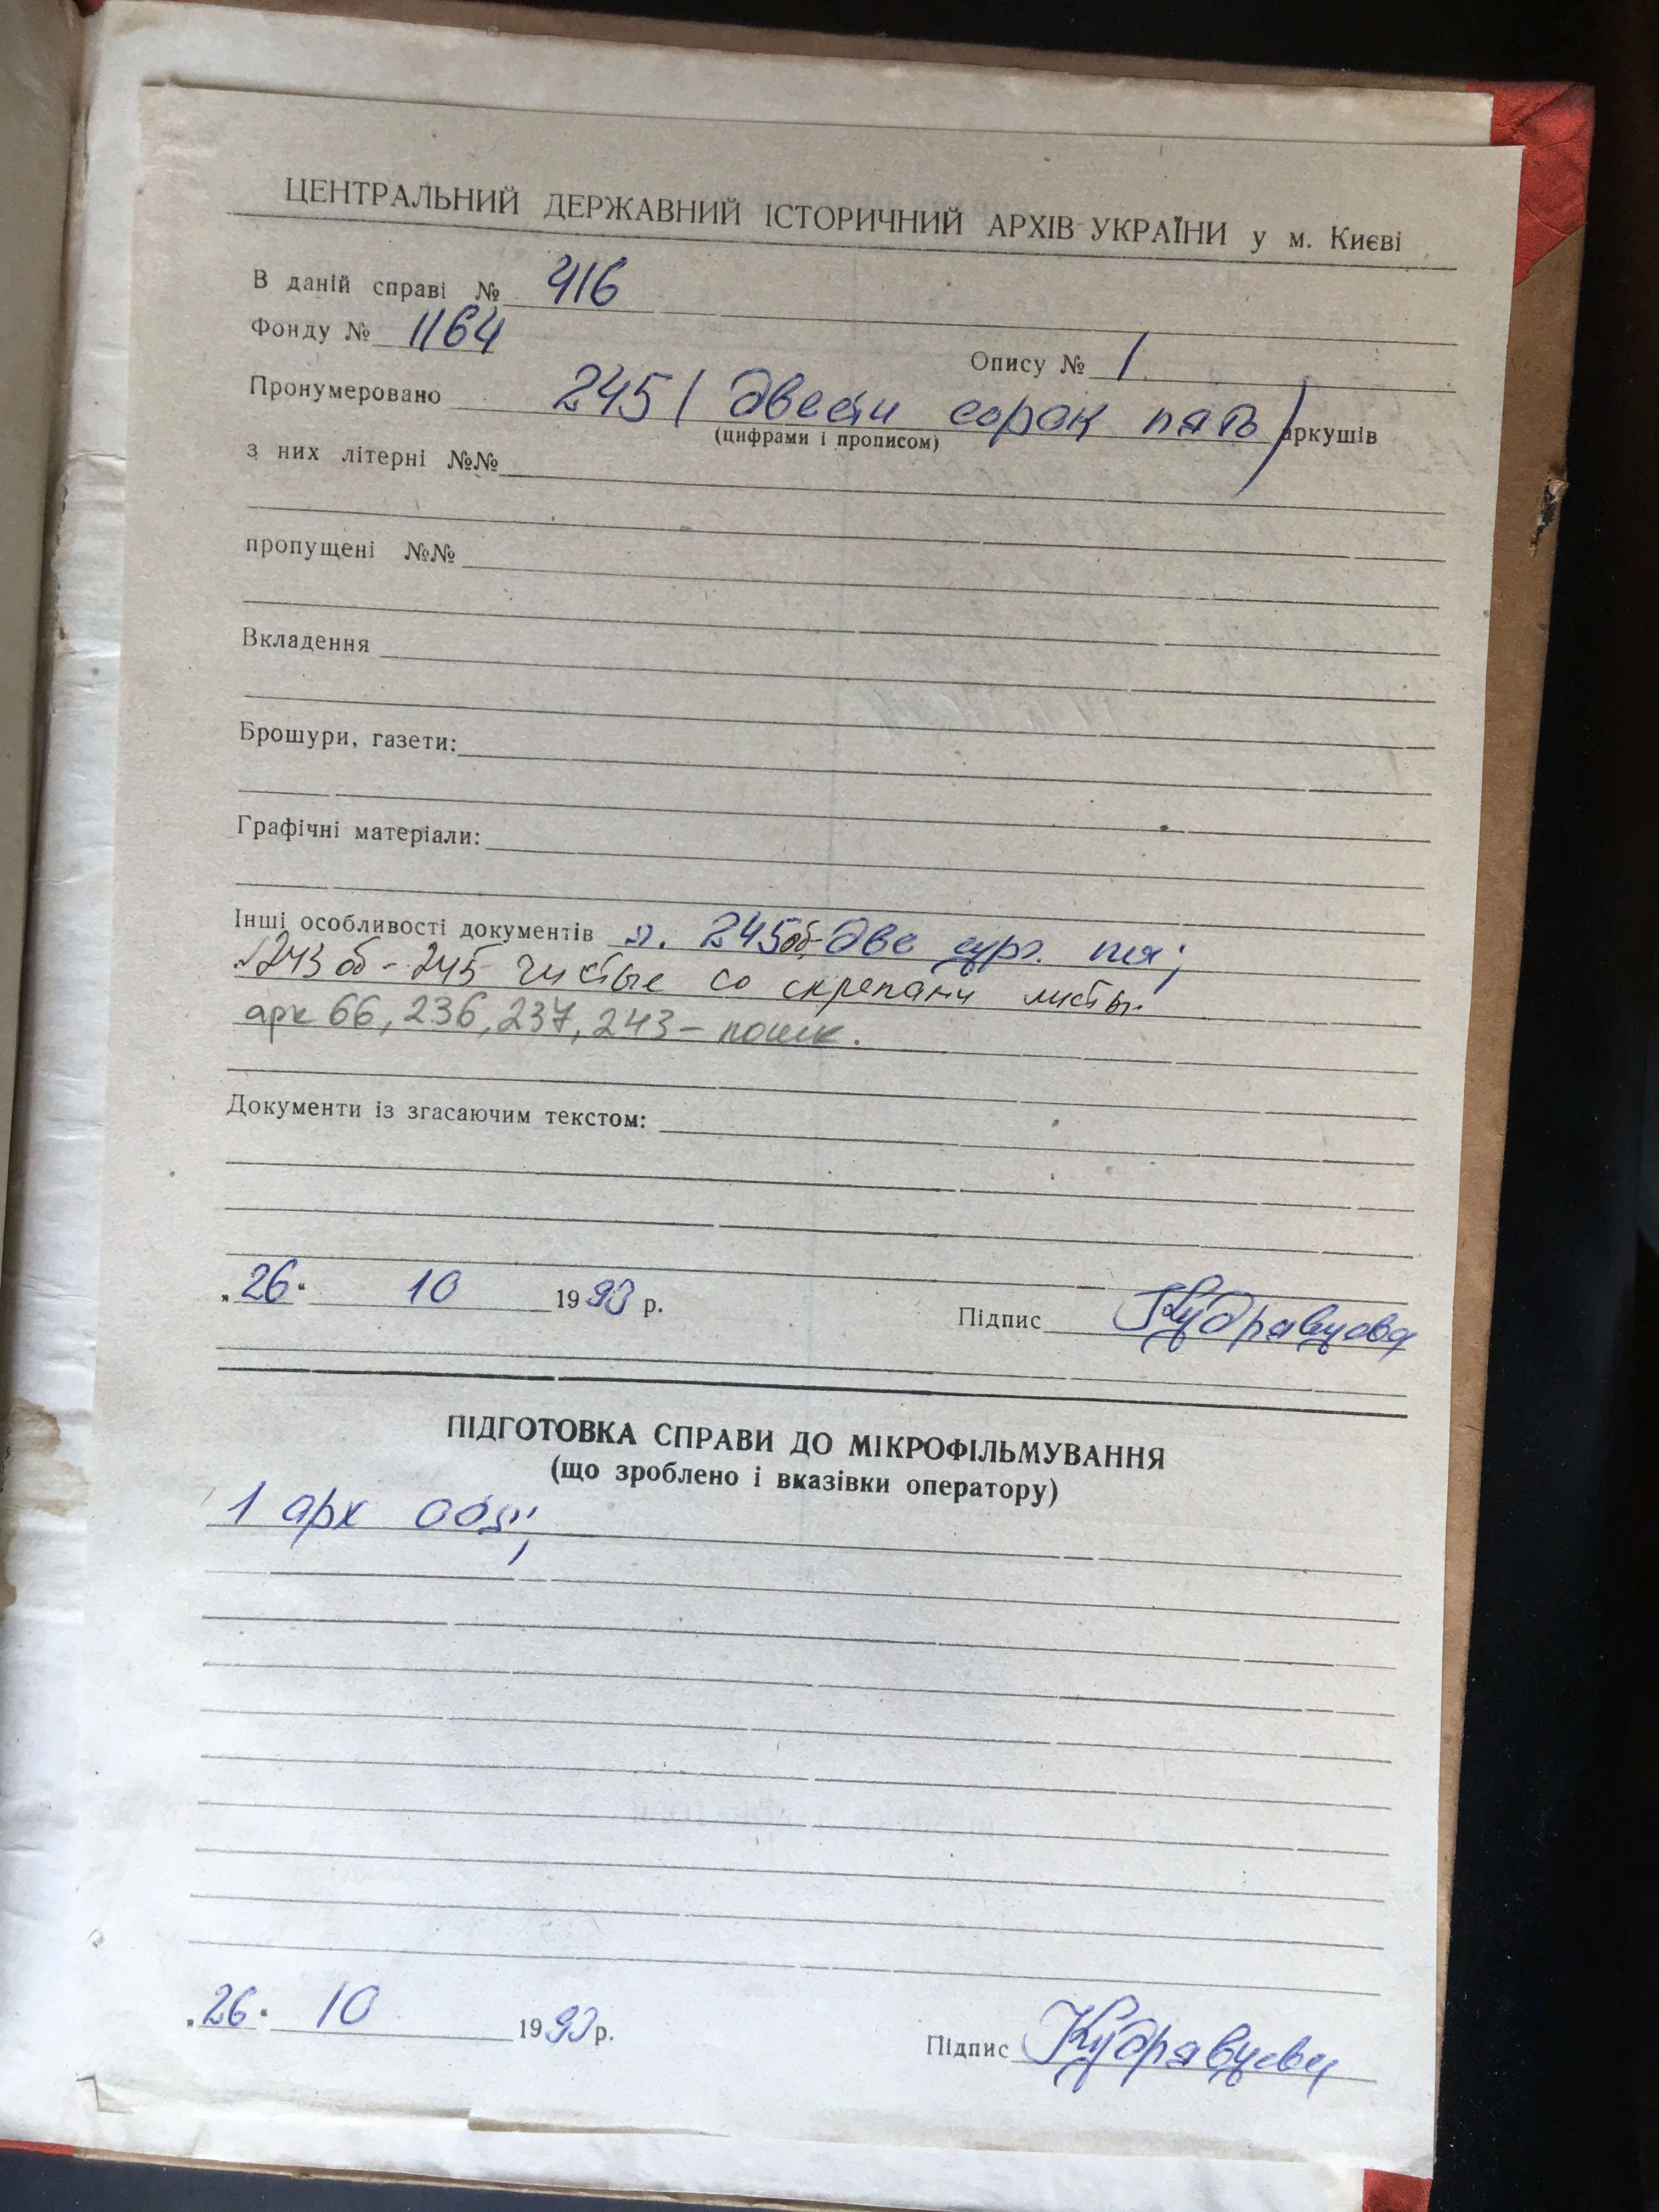 ЦЕНТРАЛЬНИЙ ДЕРЖАВНИЙ ІСТОРИЧНИЙ АРХІВ УКРАЇНИ у м. Києві
В даній справі № 416
Фонду № 1164 Опису № 1
Пронумеровано 245 (двести сорок пять) аркушів
(цифрами і прописом)
з них літерні №№
пропущені №№
Вкладення
Брошури, газети:
Графічні матеріали:
Інші особливості документів л. 245об-две
243об-245 чистые со скрепами листы
арк 66, 236, 237, 243 - пошк.
Документи із згасаючим текстом:
„26“ 10 1993 р. Підпис Кудрявцева
ПІДГОТОВКА СПРАВИ ДО МІКРОФІЛЬМУВАННЯ
(що зроблено і вказівки оператору)
1 арк
„26“ 10 1993 р. Підпис Кудрявцева